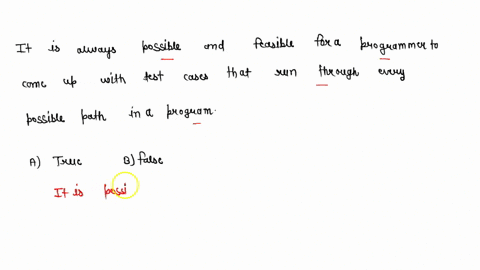 It is always possible and feasible for a programmer to
come up with test cases that run through every
possible path in a program.
A) True B) false
It is possi